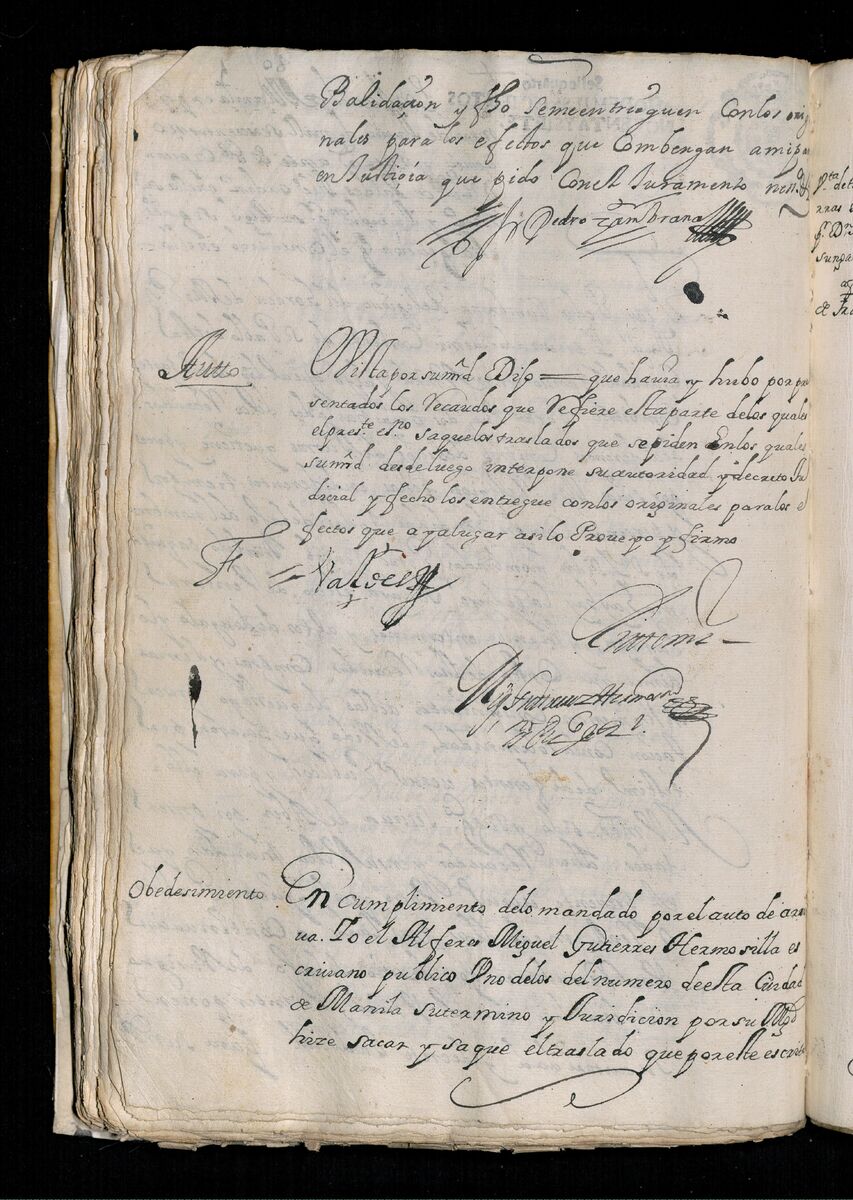 Validacion y fho semeentrieguen Conlos orig
nales para los efectos que Combengan amipar
en Justicia que pido Conel Juramento ness.o &
Fr Pedro Zambrano
Autto
Vista por sumrd Dijo = que havia y hubo por pre
sentados los Recaudos que Refiere esta parte delos quales
el pres.te es.no saquelos traslados que sepiden Enlos quales
sumrd desdeluego interpone su autoridad y decreto Ju
dicial y fecho los entregue conlos originales paralos e
fectos que ayalugar asilo Proveyo y firmo
Antemi
Obedesimiento
En cumplimiento delo mandado por el auto de arri
va. Yo el Alferes Miguel Gutierres Hermosilla es
crivano publico Vno delos del numero de esta Ciudad
de Manila sutermino y Juridicion por su Magd
hize sacar y saque el traslado que por este escrito